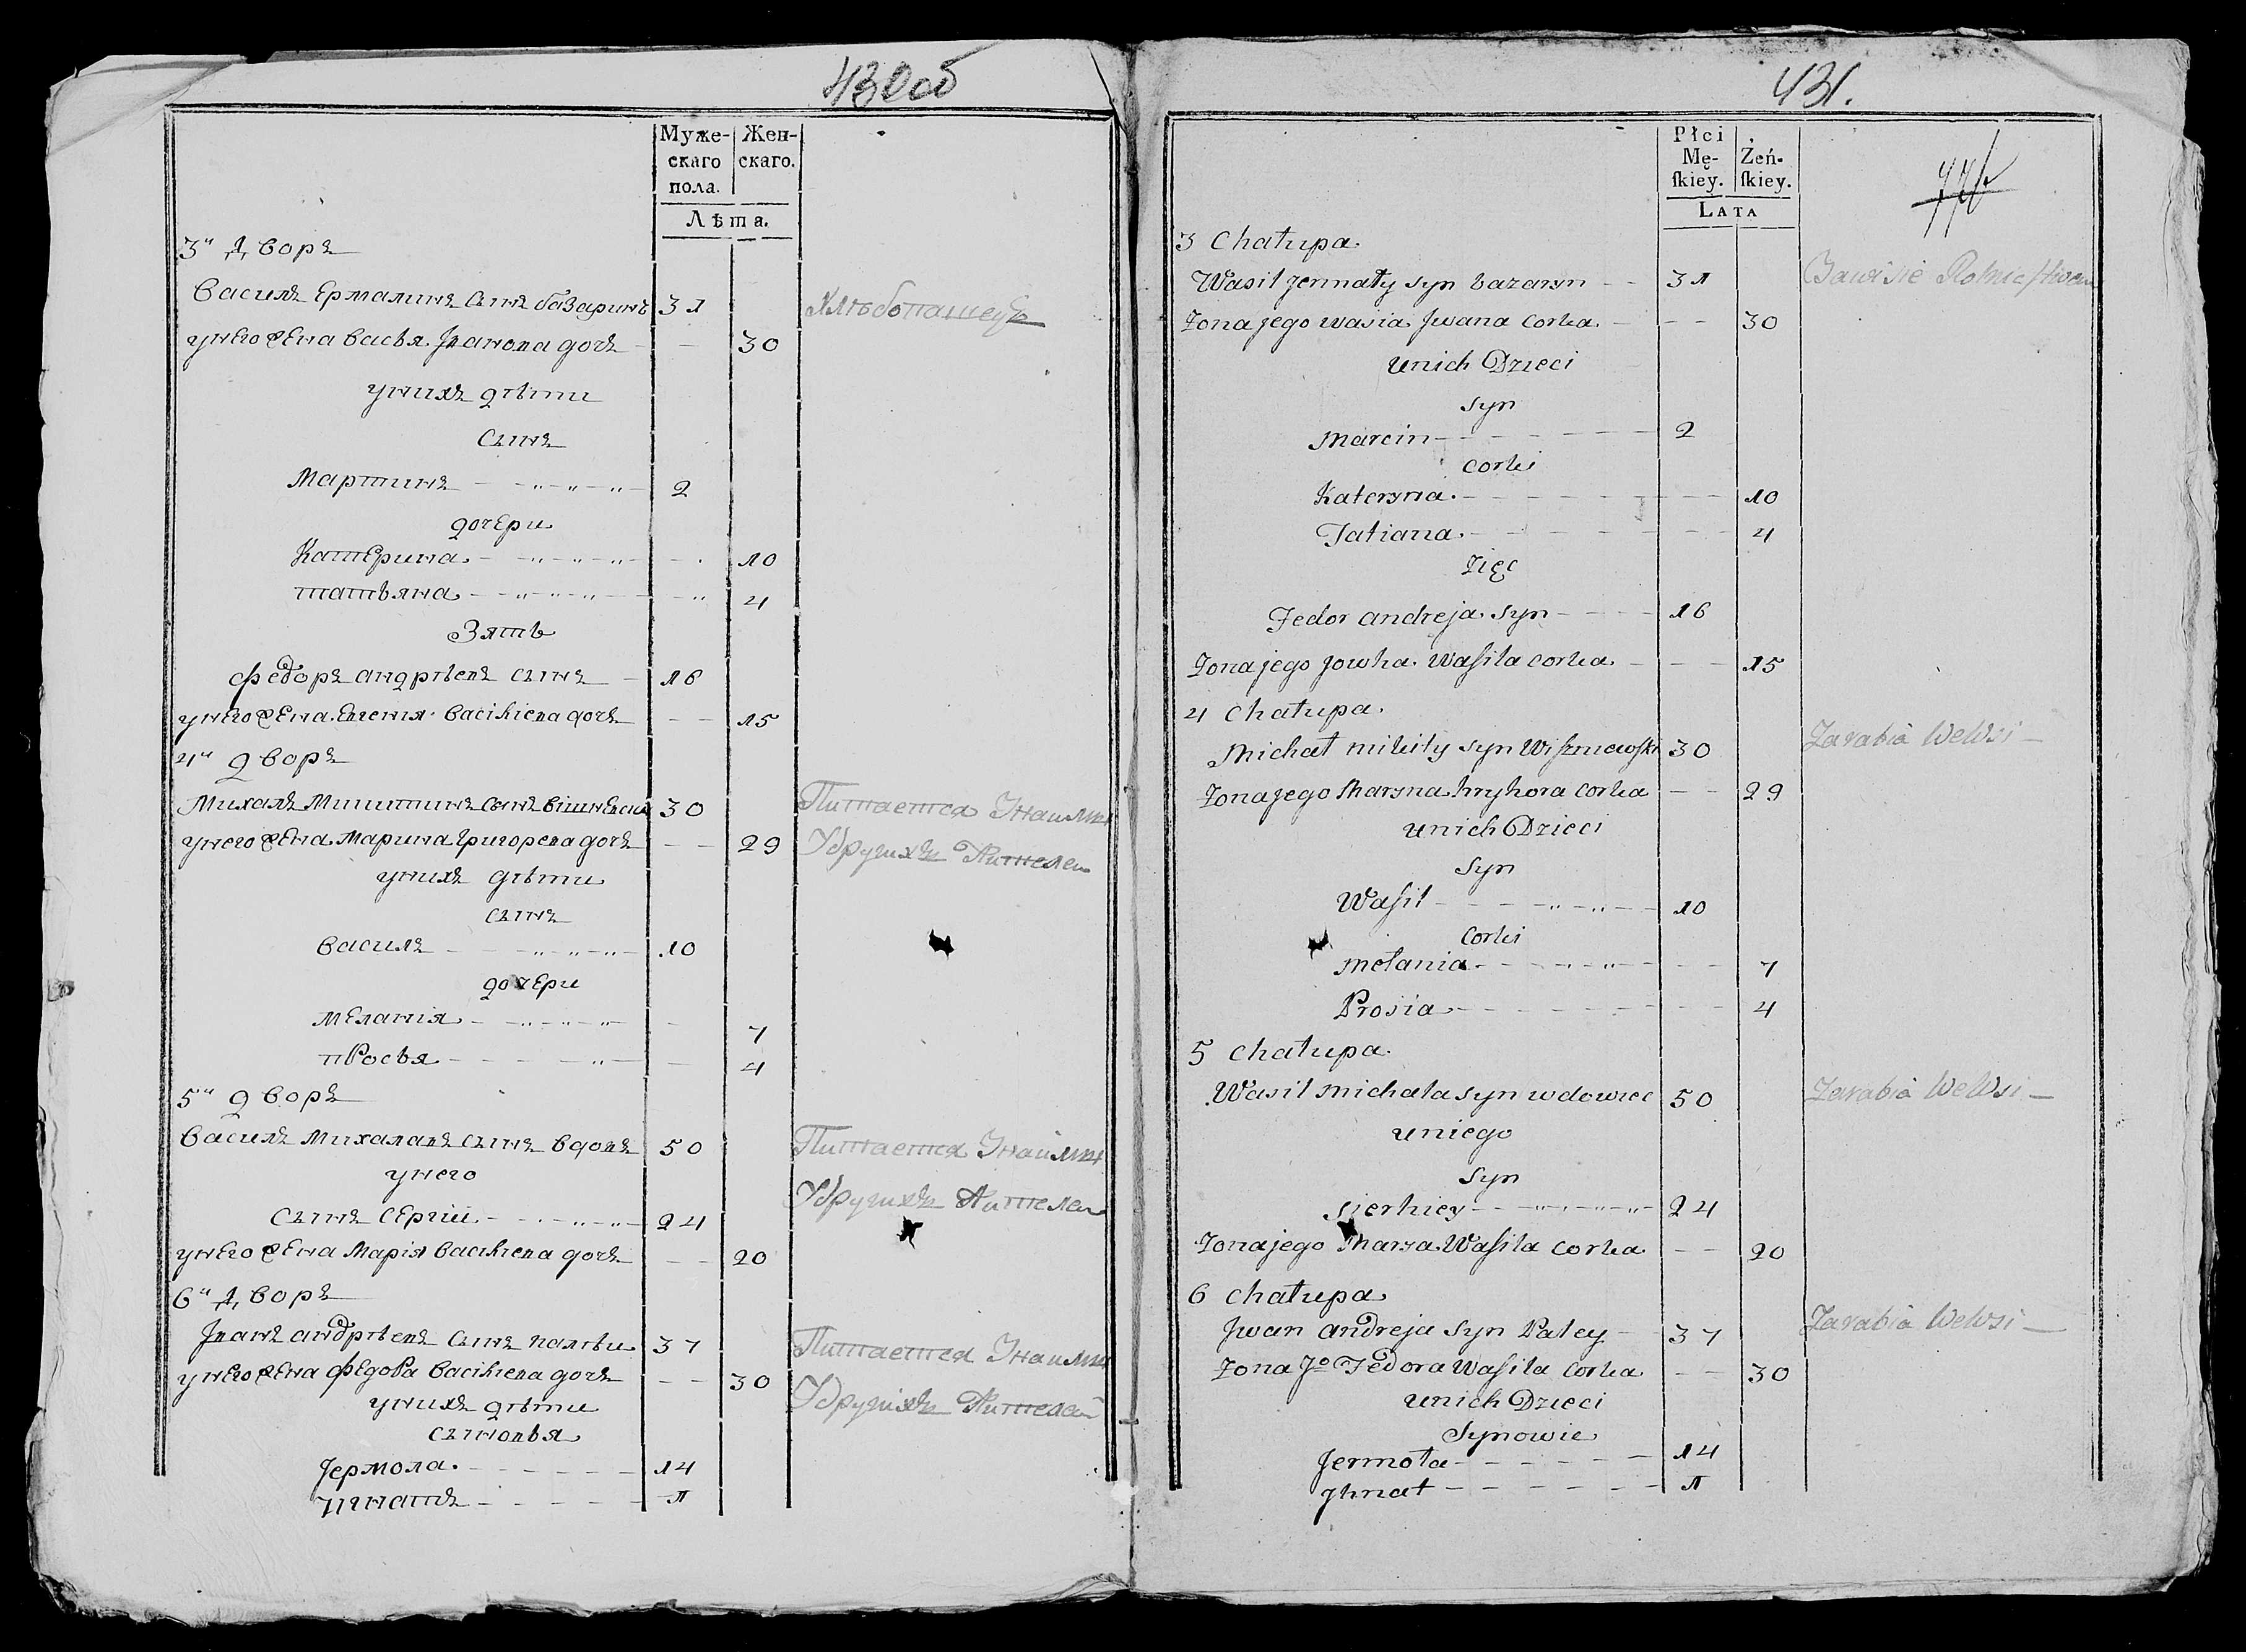 430об
Муже-
скаго
пола.
Жен-
скаго.
Лѣта.
3й Дворъ
Василь Ермалинъ сынъ базаринъ 31 Хлѣбопашецъ
унего жена васья Іванова дочь - - 30
унихъ дѣти
сынъ
Мартинъ 2
дочери
Катерина 10
татьяна 4
Зять
федоръ андрѣевъ сынъ 16
унего жена Евгенія василіева дочь - - 15
4й дворъ
Михалъ Микитинъ сынъ вішневски 30 Питается Знаимки
унего жена Марина григорева дочь - - 29 Удругихъ Жителей
унихъ дѣти
сынъ
василь 10
дочери
Меланія 7
пРосья 4
5й дворъ
василь Михалавъ сынъ вдовъ 50 Питается Знаймки
унего Удругихъ Жителей
сынъ Сергій 24
унего жена Марія василіева дочь - - 20
6й Дворъ
Іванъ андрѣевъ сынъ палѣи 37 Питается Знаимки
унего жена федоРа василіева дочь - - 30 Удругіхъ Жителей
унихъ дѣти
сыновья
Jермола 14
Игнатъ 11
431.
Płci
Mę-
ſkiey.
Żeń-
ſkiey.
Lata
3 Chałupa.
Wasil Jermały syn bazaryn 31 Bawi sie Rolnictwem
Żona jego wasia Jwana corka - - 30
unich Dzieci
syn
Marcin 2
corki
Kateryna 10
Tatiana 4
Zięc
Fedor andreja syn 16
Żona jego Jowha Waſila corka - - 15
4 Chałupa.
Michał mikity syn Wiſzniewſki 30 Zarabia WeWsi
Żona jego Maryna hryhora corka - - 29
unich Dzieci
syn
Waſil 10
corki
Mełania 7
Prosia 4
5 chałupa.
Wasil michała syn wdowiec 50 Zarabia WeWsi
uniego
syn
Sierhiey 24
Żona jego Marya Waſila corka - - 20
6 chałupa
Jwan andreja syn Paley 37 Zarabia WeWsi
Żona Jo Fedora Waſila corka - - 30
unich Dzieci
Synowie
Jermoła 14
Jhnat 11